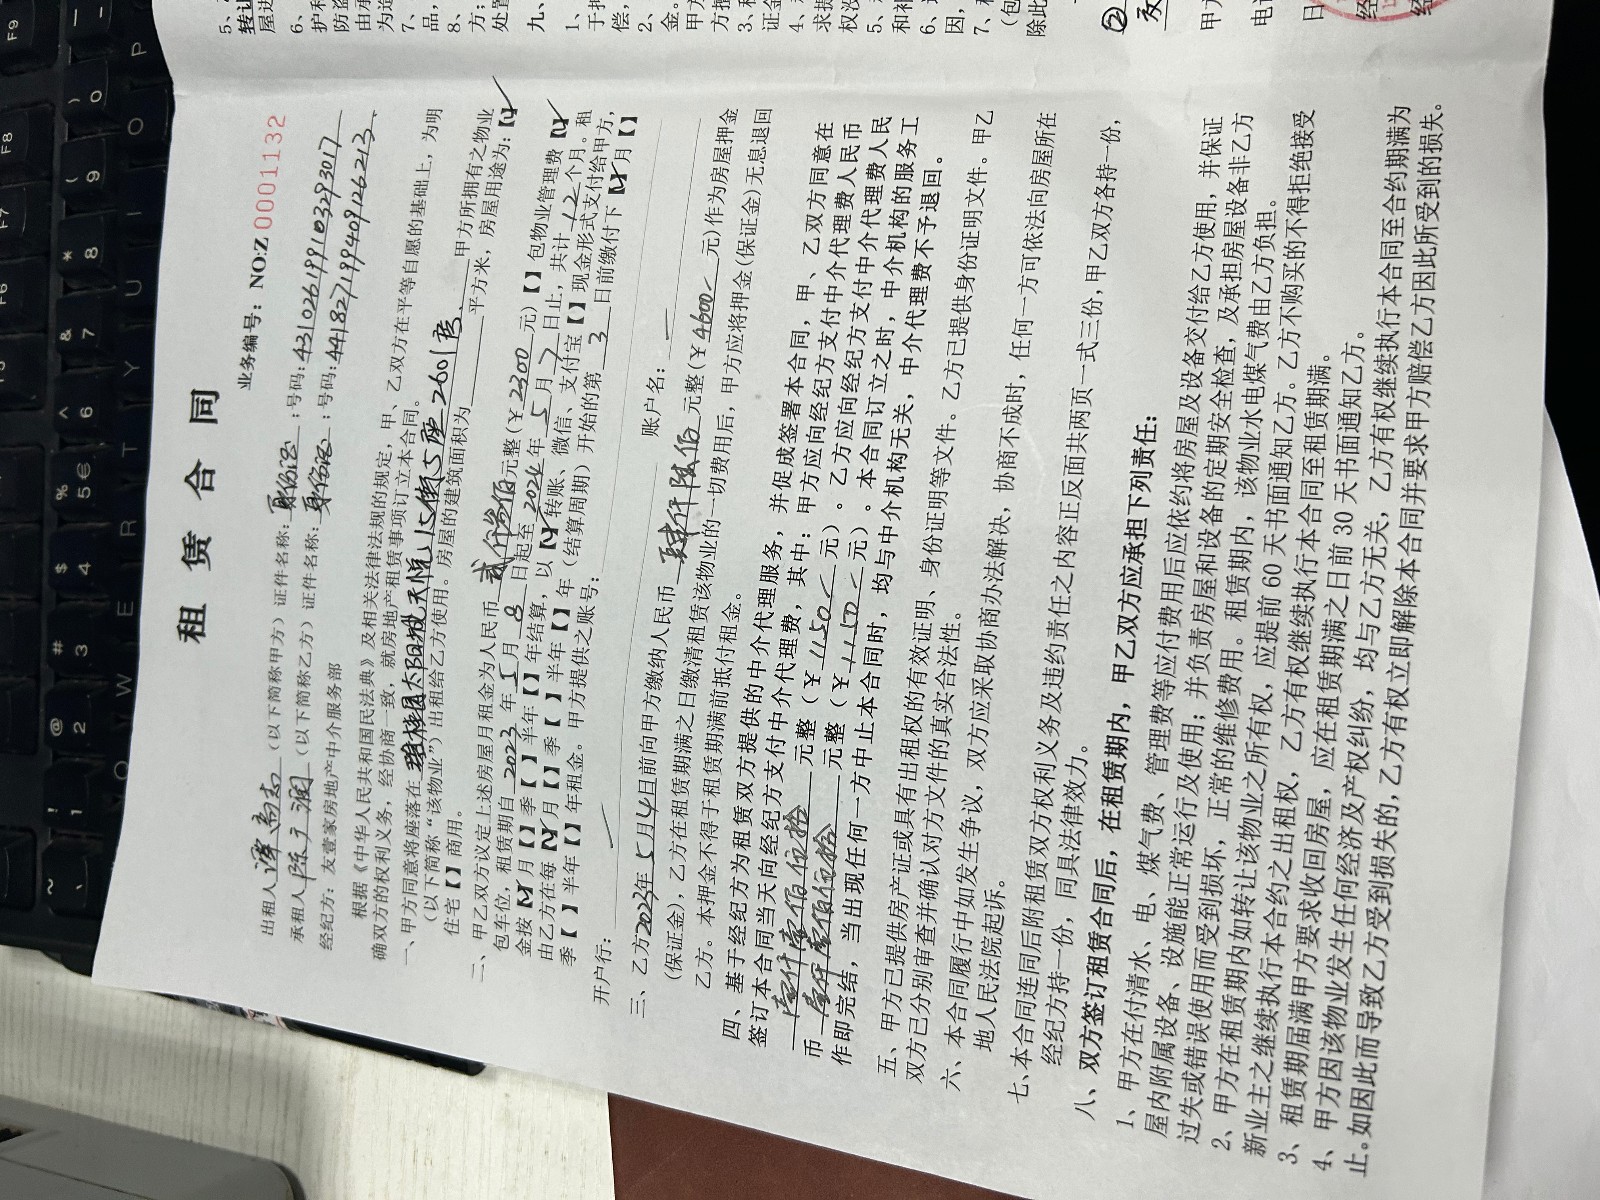 租赁合同
业务编号：NO:Z 0001132
出租人谭高志（以下简称甲方）证件名称：身份证：号码：431026199103293017
承租人陈子润（以下简称乙方）证件名称：身份证：号码：441827199409126213
经纪方：友壹家房地产中介服务部
根据《中华人民共和国民法典》及相关法律法规的规定，甲、乙双方在平等自愿的基础上，为明
确双方的权利义务，经协商一致，就房地产租赁事项订立本合同。
一、甲方同意将座落在碧桂园太阳城天悦15街5座2601房、甲方所拥有之物业
（以下简称“该物业”）出租给乙方使用。房屋的建筑面积为 平方米，房屋用途为：【√】
住宅【】商用。
二、甲乙双方议定上述房屋月租金为人民币贰仟叁佰元整（￥2300元）【】包物业管理费【√】
包车位，租赁期自2023年5月8日起至2024年5月7日止，共计12个月。租
金按【√】月【】季【】半年【】年结算，以【√】转账、微信、支付宝【】现金形式支付给甲方，
由乙方在每【√】月【】季【】半年【】年（结算周期）开始的第3日前缴付下【√】月【】
季【】半年【】年租金。甲方提供之账号：
开户行： 账户名：
三、乙方2023年5月4日前向甲方缴纳人民币肆仟陆佰元整（￥4600元）作为房屋押金
（保证金），乙方在租赁期满之日缴清租赁该物业的一切费用后，甲方应将押金（保证金）无息退回
乙方。本押金不得于租赁期满前抵付租金。
四、基于经纪方为租赁双方提供的中介代理服务，并促成签署本合同，甲、乙双方同意在
签订本合同当天向经纪方支付中介代理费，其中：甲方应向经纪方支付中介代理费人民币
壹仟壹佰伍拾元整（￥1150元）。乙方应向经纪方支付中介代理费人民
币壹仟壹佰伍拾元整（￥1150元）。本合同订立之时，中介机构的服务工
作即完结，当出现任何一方中止本合同时，均与中介机构无关，中介代理费不予退回。
五、甲方已提供房产证或具有出租权的有效证明、身份证明等文件。乙方已提供身份证明文件。甲乙
双方已分别审查并确认对方文件的真实合法性。
六、本合同履行中如发生争议，双方应采取协商办法解决，协商不成时，任何一方可依法向房屋所在
地人民法院起诉。
七、本合同连同后附租赁双方权利义务及违约责任之内容正反面共两页一式三份，甲乙双方各持一份，
经纪方持一份，同具法律效力。
八、双方签订租赁合同后，在租赁期内，甲乙双方应承担下列责任：
1、甲方在付清水、电、煤气费、管理费等应付费用后应依约将房屋及设备交付给乙方使用，并保证
屋内附属设备、设施能正常运行及使用；并负责房屋和设备的定期安全检查，及承担房屋设备非乙方
过失或错误使用而受到损坏，正常的维修费用。租赁期内，该物业水电煤气费由乙方负担。
2、甲方在租赁期内如转让该物业之所有权，应提前60天书面通知乙方。乙方不购买的不得拒绝接受
新业主之继续执行本合约之出租权，乙方有权继续执行本合同至租赁期满。
3、租赁期届满甲方要求收回房屋，应在租赁期满之日前30天书面通知乙方。
4、甲方因该物业发生任何经济及产权纠纷，均与乙方无关，乙方有权继续执行本合同至合约期满为
止。如因此而导致乙方受到损失的，乙方有权立即解除本合同并要求甲方赔偿乙方因此所受到的损失。